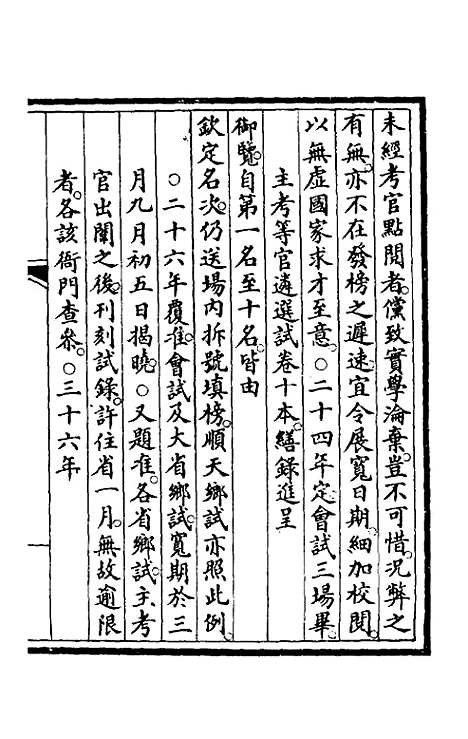 未經考官點閱者。儻致實學淪棄。豈不可惜。況弊之
有無。亦不在發榜之遲速。宜令展寬日期。細加校閱。
以無虛國家求才至意。○二十四年定會試三場畢。
主考等官遴選試卷十本。繕錄進呈
御覽。自第一名至十名。皆由
欽定名次。仍送場內拆號填榜。順天鄉試亦照此例。
○二十六年覆准。會試及大省鄉試。寬期於三
月九月初五日揭曉。○又題准。各省鄉試。主考
官出闈之後。刊刻試錄。許住省一月。無故逾限
者。各該衙門查參。○三十六年